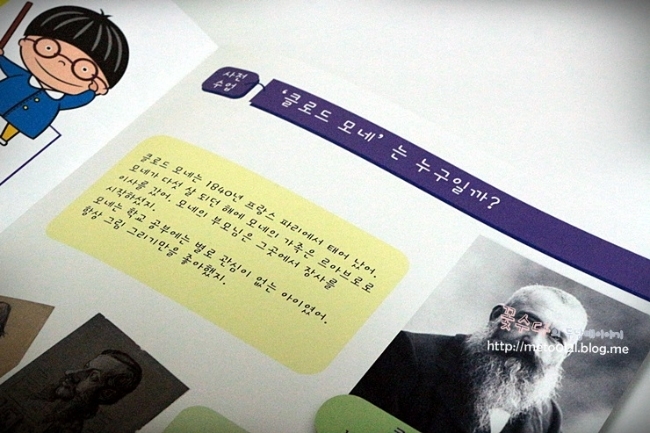 사전
수업
'클로드 모네' 는 누구일까?
클로드 모네는 1840년 프랑스 파리에서 태어 났어.
모네가 다섯 살 되던 해에 모네의 가족은 르아브르로
이사를 갔어. 모네의 부모님은 그곳에서 장사를
시작하셨지.
모네는 학교 공부에는 별로 관심이 없는 아이였어.
항상 그림 그리기만을 좋아했지.
꽃수다
http://metooall.blog.me